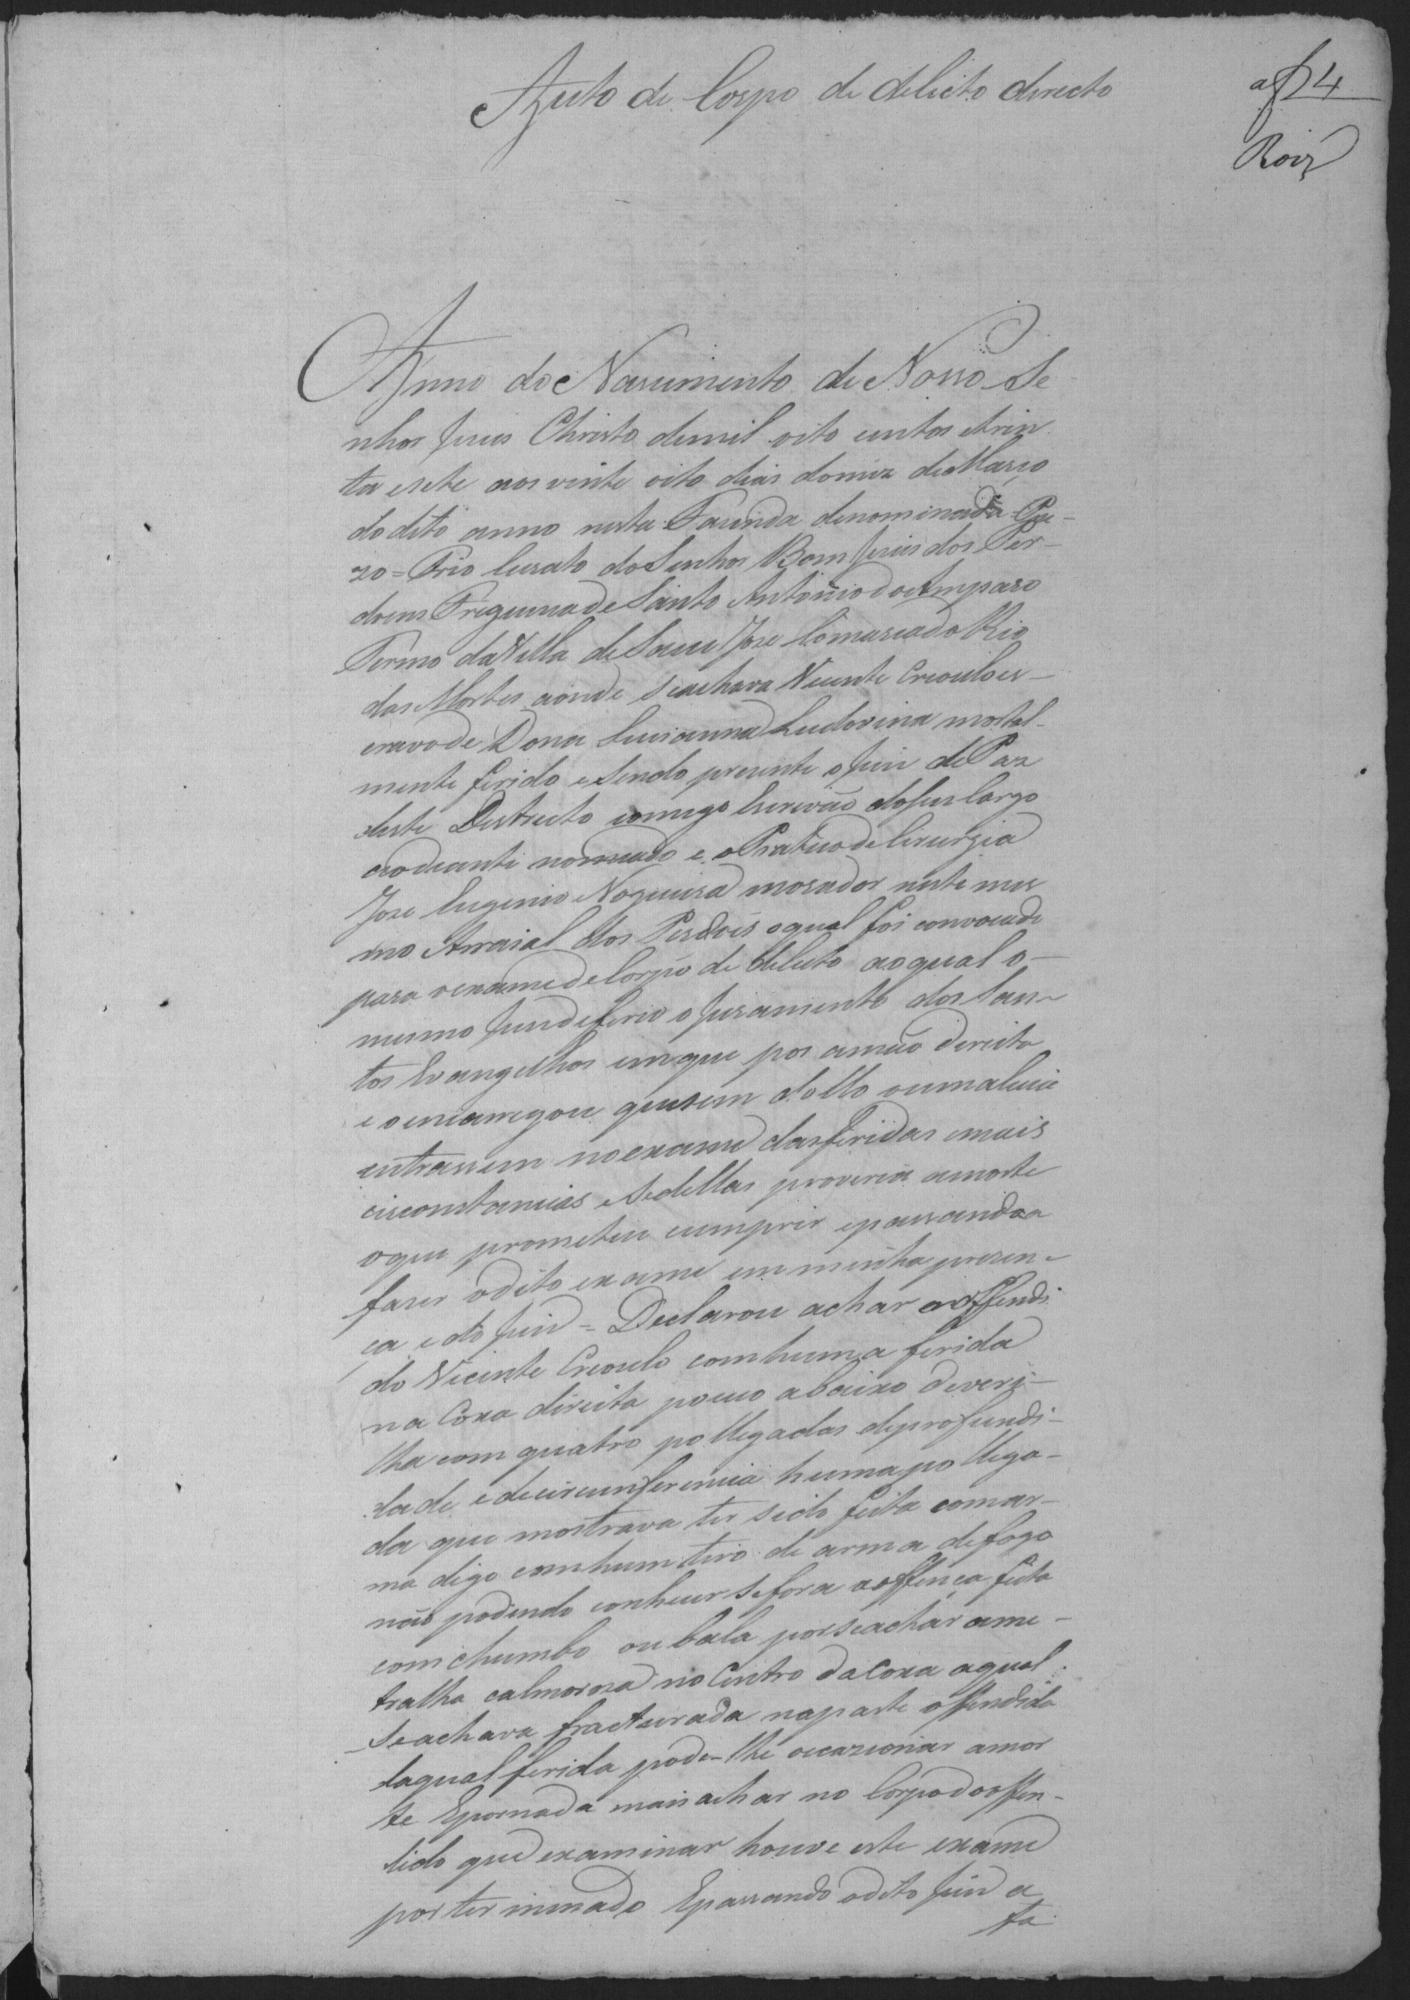 Auto de Corpo de delicto directo
af 4
Roiz
Anno do Nascimento de Nosso Se
nhor Jesus Christo demil oito centos etrin
ta esete aos vinte oito dias domez deMarço
dodito anno nesta Fazenda denominada
Curato doSenhor Bom Jesus dos Per-
doens Freguezia de Santo Antonio do Amparo
Termo daVilla de Sam José Comarca do Rio
das Mortes aonde seachava Vicente Crioulo es-
cravo de Dona Lucianna Ludovina mortal-
mente ferido e sendo presente o Juiz de Paz
deste Destricto comigo Escrivão deseu Cargo
aodeante nomeado e o Pratico de Cirurgia
Joze Eugenio Nogueira morador neste mes
mo Arraial dos Perdões oqual foi convocado
para oexame de Corpo de delicto aoqual o
mesmo Juiz deferio o Juramento dos San-
tos Evangelhos emque pos amão direita
e oencarregou quesem dollo oumalicia
entrassem noexame dasferidas emais
circonstancias e sedellas proveria amorte
oque prometeu cumprir epassando a
fazer odito exame em minha presen-
ça e do Juiz = Declarou achar aoffendi
do Vicente Crioulo comhuma ferida
na Coxa direita pouco abaixo da veri-
lha com quatro pollegadas deprofundi-
dade e decircunferencia huma pollega-
da que mostrava ter sido feita comar-
ma digo comhum tiro de arma defogo
não podendo conhecer sefora aoffença feita
com chumbo ou bala porseachar ame-
tralha no Centro da Coxa aqual
seachava fracturada naparte offendida
laqual ferida pode-lhe occazionar amor
te Epornada mais achar no Corpo do offen-
dido que examinar houve este exame
por terminado Epassando odito Juiz a
fa